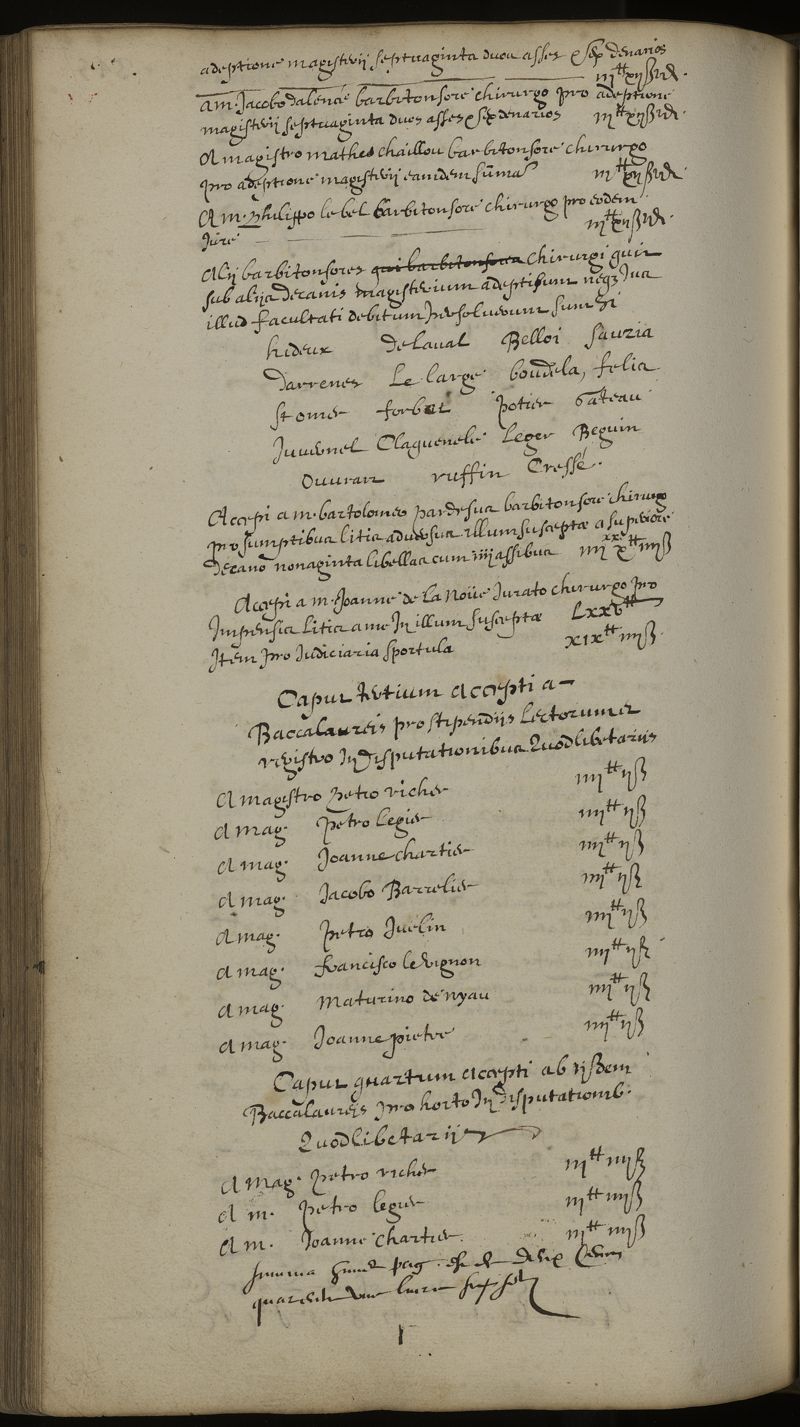 adeptione magisterij septuaginta duos asses & sex denarios
iij ₶ xij ß vi ₰.
a m. Jacobo dalencé barbitonsore chirurgo pro adeptione
magisterij septuaginta duos asses & sex denarios iij ₶ xij ß vi ₰.
A magistro matheo chaillou barbitonsore chirurgo
pro adeptione magisterij eamdem summā iij ₶ xij ß vi ₰.
A m. Philippo le bel barbitonsore chirurgo pro eodem
Jure iij ₶ xij ß vi ₰.
Alij barbitonsores qui barbitonsores chirurgi qui
sub alijs decanis magisterium adepti sunt neqz Jus
illud facultati debitum persolverunt sunt hi
hideux Delaval Belloi Sauzia
Darrenes Le large boudela, felia
St omer forbet potier Gateau
Juvernel Claquenele Leger Beguin
Ouurart ruffin Cressé.
Accepi a m. bartolomeo pardessus barbitonsore chirurgo
pro sumptibus litis adversus illum susceptæ a superiore
Decano nonaginta libellas cum iiij assibus iiij xx x ₶ iiij ß
Accepi a m. Joanne de La Noüe Jurato chirurgo pro
Impensis litis a me In illum susceptæ Lxxv ₶
Item pro Judiciaria sportula xix ₶ iiij ß.
Caput tertium accepti a
Baccalaureis pro stipendijs Lectorum et
registro In Disputationibus Quodlibetariis
A magistro petro richer iiij ₶ ij ß
A mag. petro legier iiij ₶ ij ß
A mag. Joanne chartier iiij ₶ ij ß
A mag. Jacobo Barrelier iiij ₶ ij ß
A mag. petro Juelin iiij ₶ ij ß
A mag. francisco le vignon iiij ₶ ij ß
A mag. Maturino de nyau iiij ₶ ij ß
A mag. Joanne pietre iiij ₶ ij ß
Caput quartum accepti ab ijsdem
Baccalaureis pro horto In Disputationib.
Quodlibetarijs
A mag. petro richer iij ₶ iiij ß
A m. petro legier iij ₶ iiij ß
A m. Joanne chartier. iij ₶ iiij ß
summa pag. est